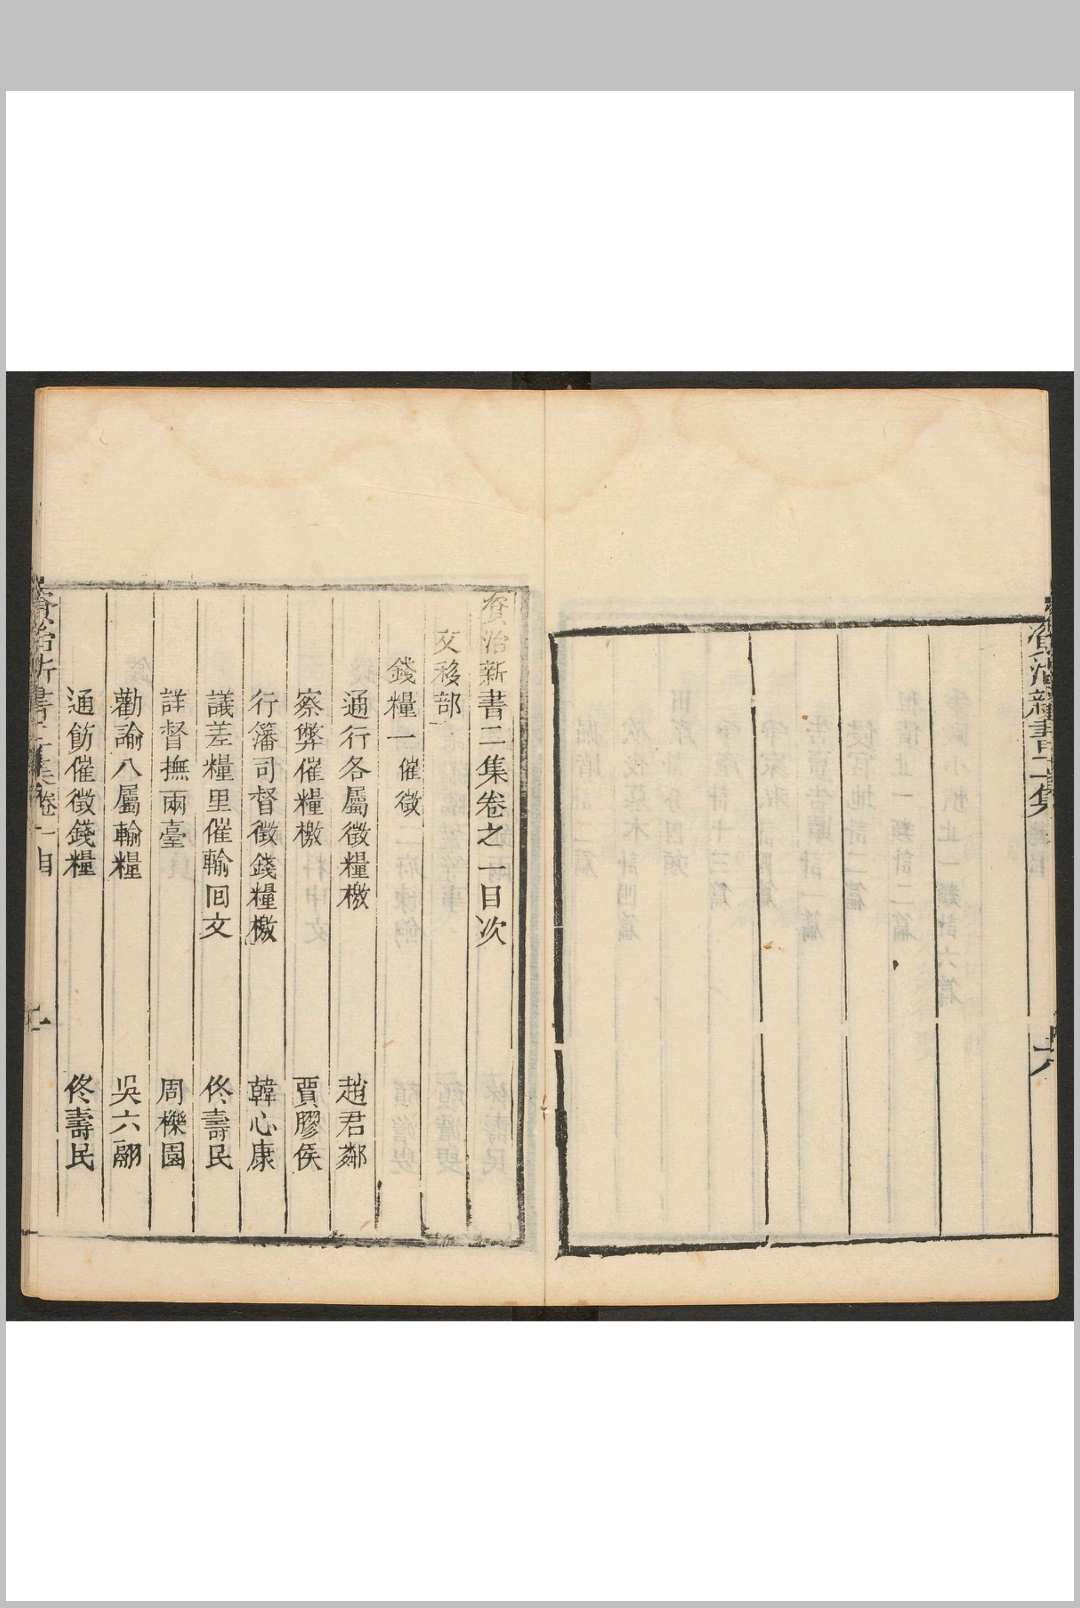 資治新書二集
資治新書二集卷之一目次
文移部
錢糧一 催徵
通行各屬徵糧檄 趙君鄰
察弊催糧檄 賈膠侯
行籓司督徵錢糧檄 韓心康
議差糧里催輸回文 佟壽民
詳督撫兩臺 周櫟園
勸諭八屬輸糧 吳六翮
通飭催徵錢糧 佟壽民
資治新書二集 卷一目 一